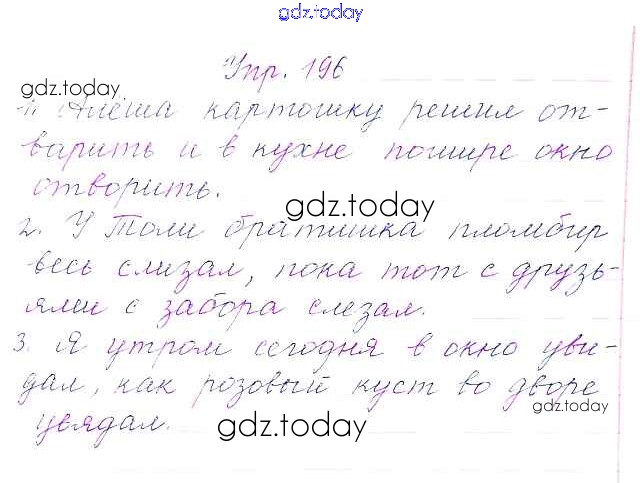 gdz.today
Упр. 196
gdz.today
1. Алёша картошку решил от-
варить и в кухне пошире окно
отворить.
gdz.today
2. У Толи братишка пломбир
весь слизал, пока тот с друзь-
ями с забора слезал.
3. Я утром сегодня в окно уви-
дал, как розовый куст во дворе
gdz.today
увядал.
gdz.today